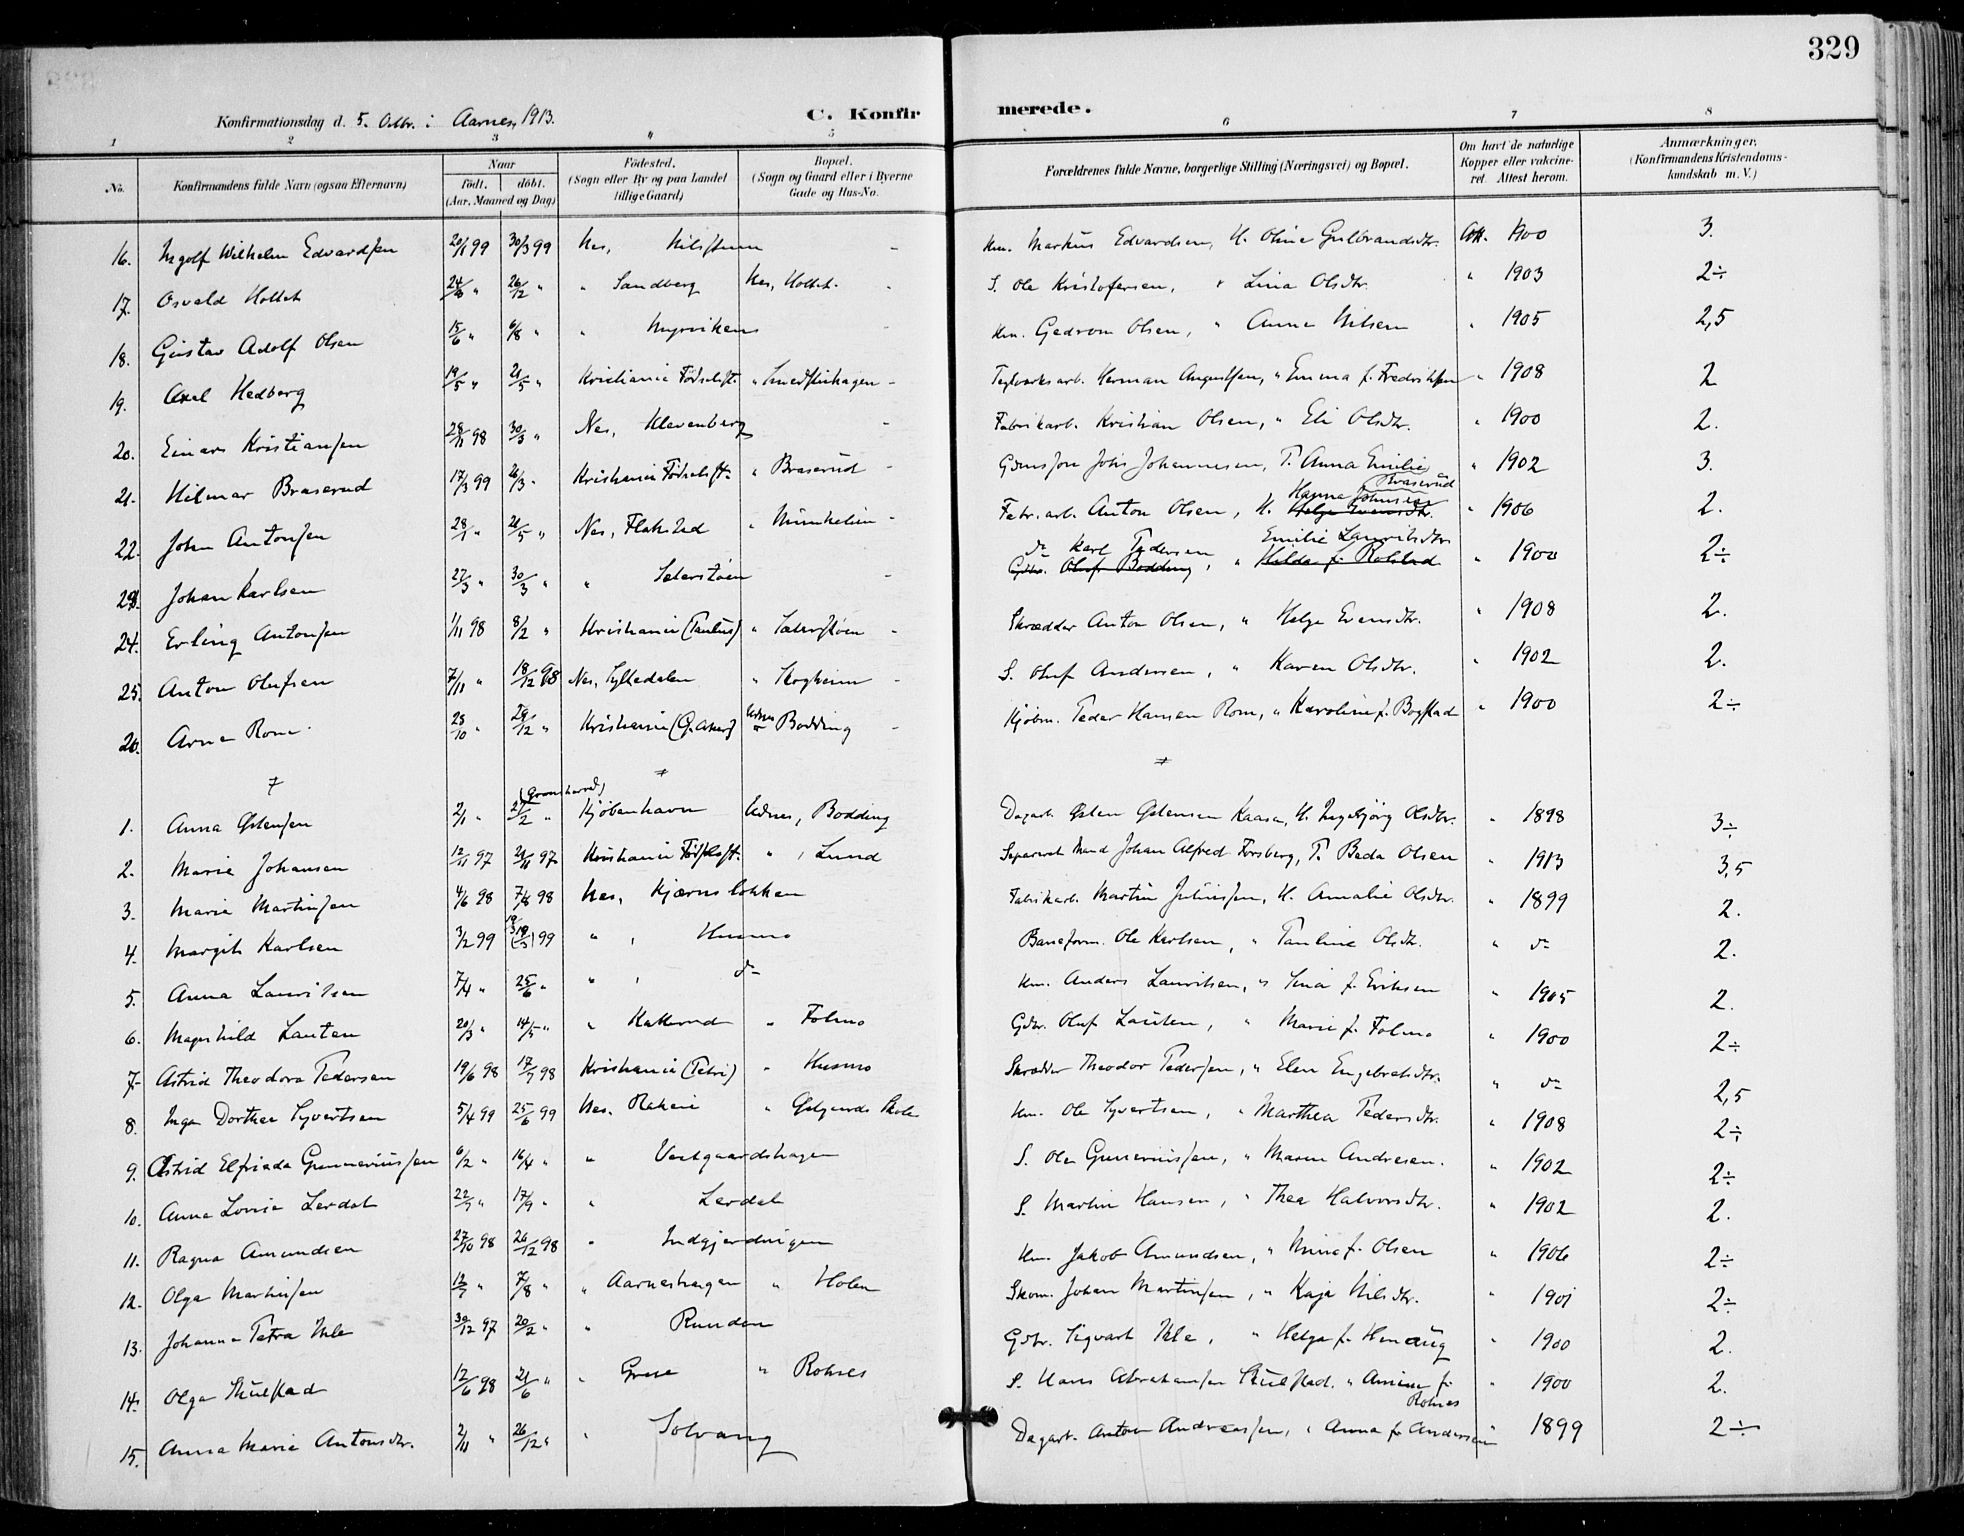 329
Konfirmationsdag d. 5. Oktbr. i Aarnes, 1913. C. Konfirmerede.
1 2 3 " 5 6 7 8
No. Konfirmandens fulde Navn (ogsaa Efternavn) Naar født. døbt. (Aar, Maaned og Dag) Fødested. (Sogn eller By og paa Landet tillige Gaard) Bopæl. (Sogn og Gaard eller i Byerne Gade og Hus-No. Forældrenes fulde Navne, borgerlige Stilling (Næringsvei) og Bopæl. Om havt de naturlige Kopper eller vakcineret. Attest herom. Anmærkninger. (Konfirmandens Kristendomskundskab m. V.)
16. Ingolf Wilhelm Edvardsen 20/1 99 30/3 99 Nes, - Hm. Markus Edvardsen, H. Oline Gulbrandsdtr. Att. 1900 3.
17. Osvald Holtet 24/ " 26/12 " " Sandberg Nes, Holtet - S. Ole Kristofersen, " Lina Olsdtr. " 1903 2÷
18. Gustav Adolf Olsen 15/6 " 6/8 " " Myrviken - Hm. Olsen, " Anna Nilsen " 1905 2,5
19. Axel Hedberg 19/5 " 21/5 " Kristiania Fødselsst. " - Teglverksarb. Herman Augustsen, " Emma f. Fredriksen " 1908 2
20. Einar Kristiansen 28/11 98 30/3 " Nes, Klevenberg - Fabrikarb. Kristian Olsen, " Eli Olsdtr. " 1900 2.
21. Hilmar Braserud 17/3 99 26/3 " Kristiania Fødselsst. " Braserud - Johs Johannesen, T. Anna Emilie Braserud " 1902 3.
22. John Antonsen 28/1 " 21/5 " Nes, Flakstad " - Fabr. arb. Anton Olsen, H. Hanna Johnsen Helga Evensdtr. " 1906 2.
23. Johan Karlsen 27/3 " 30/3 " " Sæterstøen - do Karl Pedersen Emilie Lauritsdtr Gbr. Oluf Bodding, " Hilda f. Rolstad " 1900 2÷
24. Erling Antonsen 1/11 98 8/2 " Kristiania (Paulus) " Sæterstøen - Skrædder Anton Olsen, " Helga Evensdtr. " 1908 2.
25. Anton Olufsen 7/11 " 18/12 98 Nes, Sylledalen " Skogheim - S. Oluf Andersen, " Karen Olsdtr. " 1902 2.
26. Arne Rom. 25/10 " 29/12 " Kristiania (G. Aker) Udnes " Bodding - Kjøbm. Peder Hansen Rom, " Karoline f. Bogstad " 1900 2÷
1. Anna Østensen 2/1 " 21/2 " Kjøbenhavn Udnes, Bodding Dagarb. Østen Østensen Kaasa, H. Ingebjörg Olsdtr. " 1898 3÷
2. Marie Johansen 12/11 97 21/11 97 Kristiania Fødselsst. " , Lund Separeret Mand Johan Alfred Forsberg, T. Beda Olsen " 1913 3,5
3. Marie Martinsen 4/6 98 7/8 98 Nes, Kjærnsløkken Fabrikarb. Martin Juliussen, H. Amalie Olsdtr. " 1899 2.
4. Margit Karlsen 3/2 99 19/3 99 " , Husmo Baneform. Ole Karlsen, " Pauline Olsdtr. " do 2.
5. Anna Lauritsen 7/4 " 25/6 " " , do Hm. Anders Lauritsen, " Lina f. Eriksen " 1905 2.
6. Magnhild Lauten 20/3 " 14/5 " " Kakerud " Folmo Gdbr. Oluf Lauten, " Marie f. Folmo " 1900 2÷
7. Astrid Theodora Pedersen 19/6 98 17/7 98 Kristiania (Petri) " Husmo Skrædder Theodor Pedersen, " Elen Engebretsdtr. " do 2,5
8. Inga Dorthea Syvertsen 5/4 99 25/6 99 Nes. Rakeie " Skole Hm. Ole Syvertsen, " Marthea Pedersdtr. " 1908 2÷
9. Astrid Elfrieda Gunneriussen 6/2 " 16/4 " " Vestgaardshagen S. Ole Gunneriussen, " Maren Andresen. " 1902 2÷
10. Anna Lovise Lerdal 22/7 " 17/9 " " Lerdal S. Martin Hansen, " Thea Halvorsdtr. " 1902 2.
11. Ragna Amundsen 27/10 98 26/12 98 " Indgjerdingen Hm. Jakob Amundsen, " Mina f. Olsen " 1906 2÷
12. Olga Martinsen 12/7 " 7/8 " " Aarneshagen " Holen Skom. Johan Martinsen, " Kaja Nilsdtr. " 1901 2÷
13. Johanne Petra Ihle 30/12 97 20/2 " " Runden Gdbr. Sigvart Ihle, " Helga f. Henaug " 1900 2.
14. Olga Skulstad 12/6 98 21/6 " " Grue " Rohnes S. Hans Abrahamsen Skulstad, " f. Rohnes " 1900 2.
15. Anna Marie Antonsdtr. 2/11 " 26/12 " " Solvang Dagarb. Anton Andreassen, " Anna f. Andersen " 1899 2÷